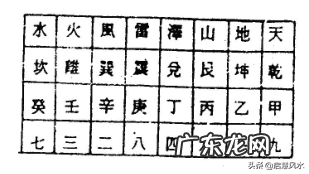 水 火 風 雷 澤 山 地 天
坎 離 巽 震 兌 艮 坤 乾
癸 壬 辛 庚 丁 丙 乙 甲
七 三 二 八 四 九
广东龙网
头条 @启慧风水